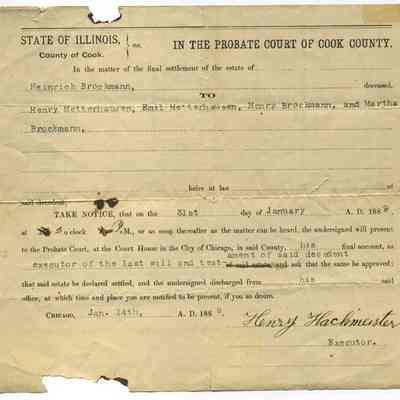 STATE OF ILLINOIS, } ss. IN THE PROBATE COURT OF COOK COUNTY.
County of Cook.
In the matter of the final settlement of the estate of
Heinrich Brockmann, deceased.
TO
Henry Metterhausen, Emil Metterhausen, Henry Brockmann, and Martha
Brockmann,
heirs at law
of
said decedent,
TAKE NOTICE, that on the 31st day of January A. D. 1889,
at o'clock P.M., or as soon thereafter as the matter can be heard, the undersigned will present
to the Probate Court, at the Court House in the City of Chicago, in said County, his final account, as
ament of said decedent
executor of the last will and test- and ask that the same be approved;
that said estate be declared settled, and the undersigned discharged from his said
office, at which time and place you are notified to be present, if you so desire.
CHICAGO, Jan. 14th, A. D. 1889.
Henry Hachmeister
Executor.